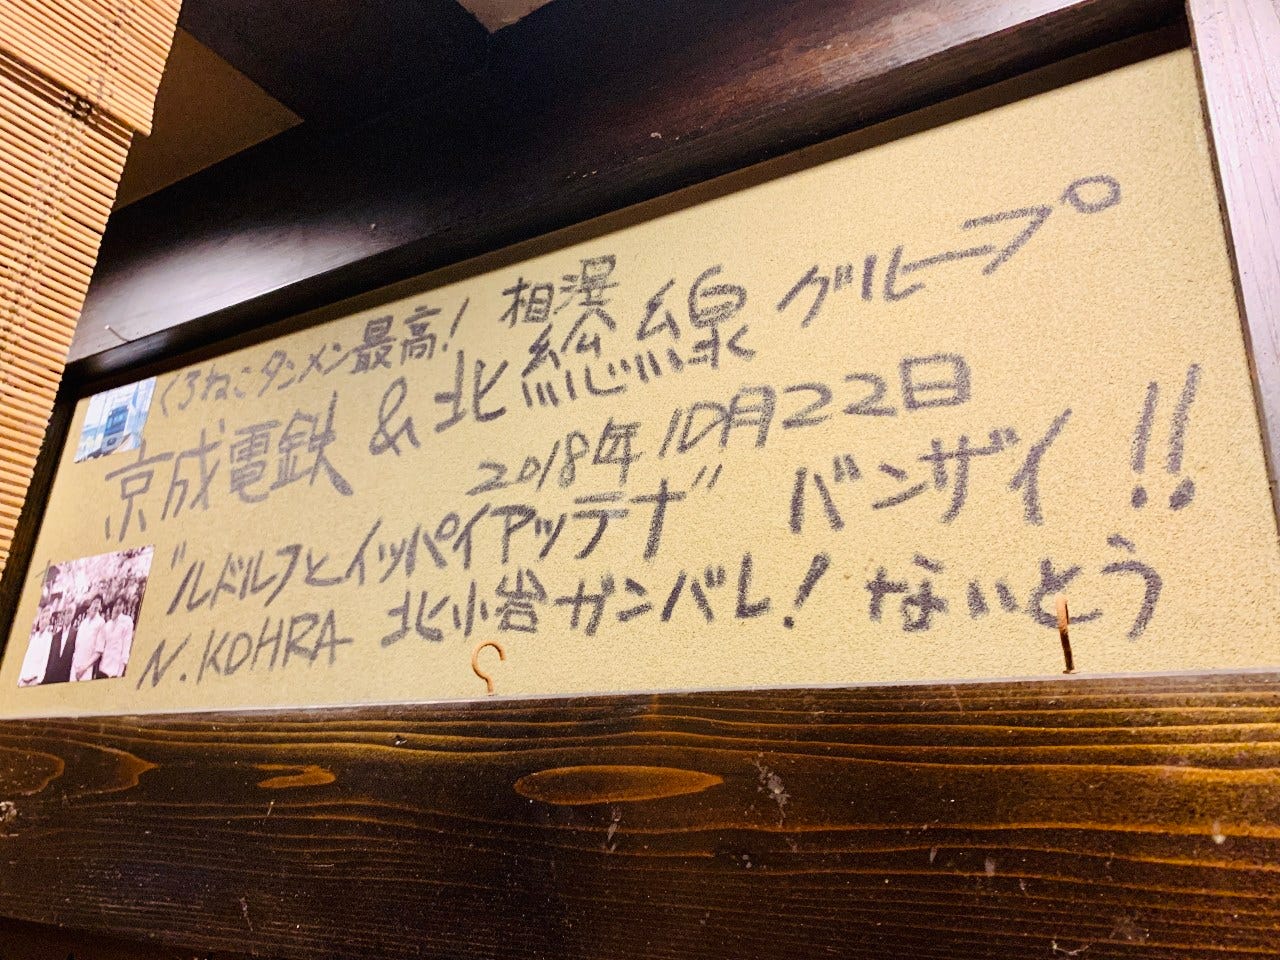 くろねこタンメン最高! 相澤
京成電鉄 & 北総線グループ
2018年10月22日
"ルドルフとイッパイアッテナ" バンザイ!!
N.KOHRA 北小岩ガンバレ! ないとう